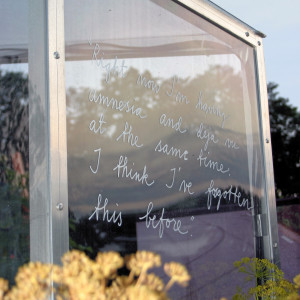 "Right now I'm having
amnesia and déjà vu
at the same time.
I think I've forgotten
this before."